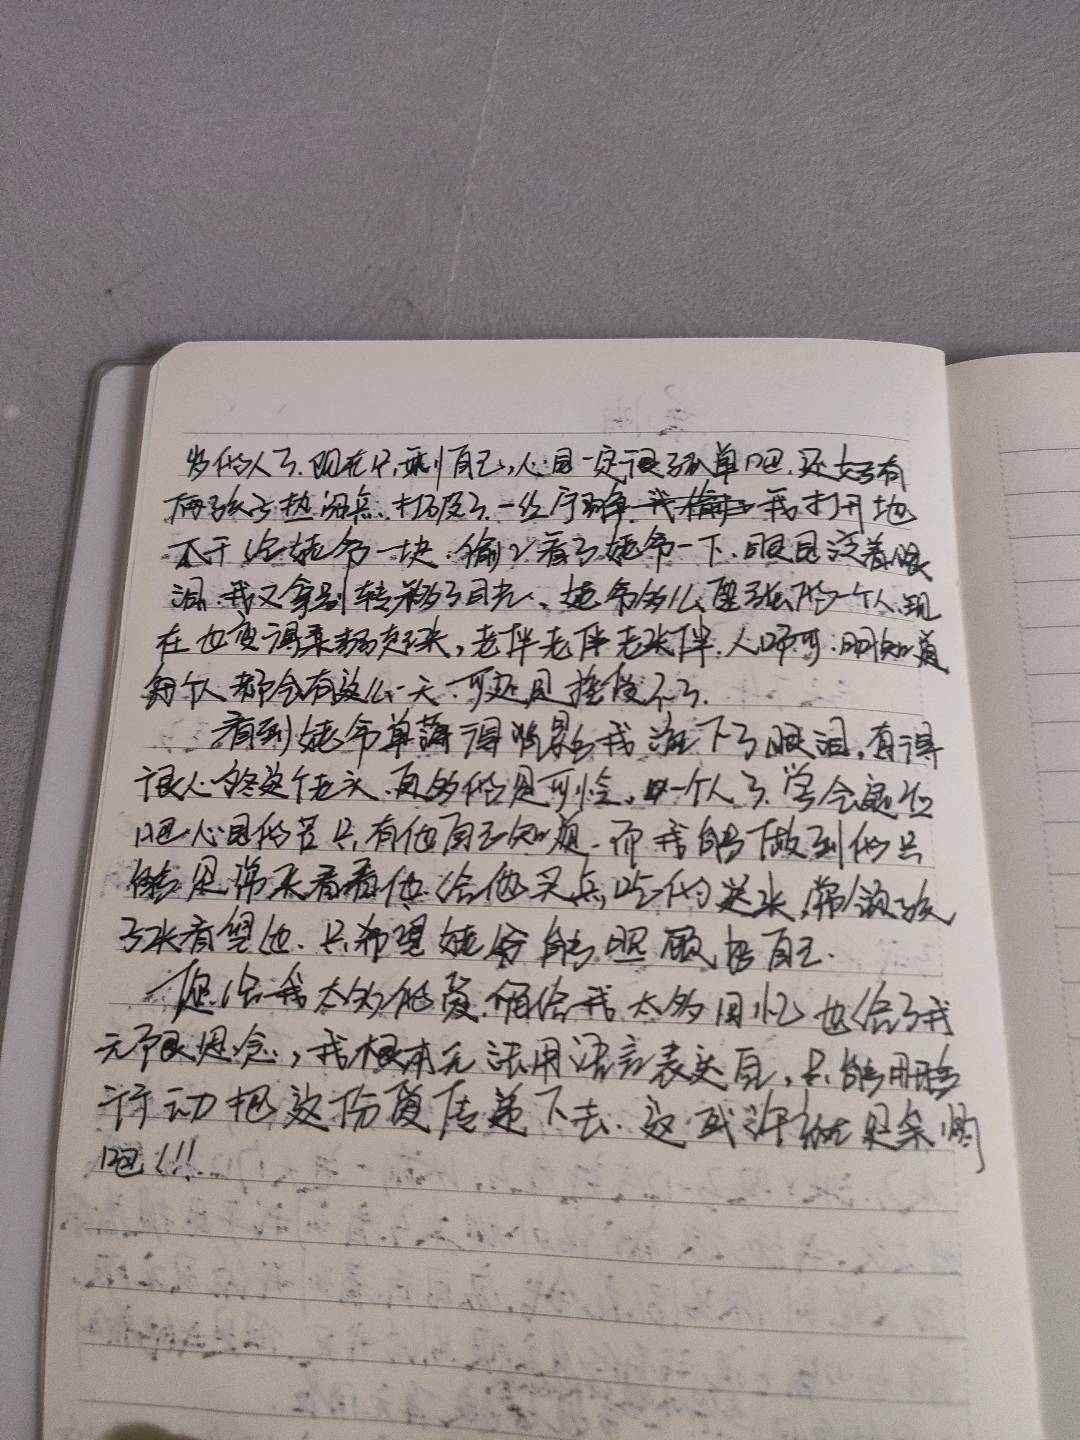 岁的人了.现在只剩自己,心里一定很孤单吧.还好有
俩孩子热闹点.打破了一些宁静.我打开地
瓜干给姥爷一块.偷偷看了姥爷一下.眼里泛着眼
泪.我又拿别转移了目光.姥爷多么坚强的一个人.现
在也变得柔弱起来,老伴老伴老来伴.人啊.明知道
每个人都会有这么一天.可还是接受不了.
看到姥爷单薄得背影我流下了眼泪,有得
很心疼这个老头.更多的是可怜,一个人了.学会适应
吧.心里的苦只有他自己知道.而我能做到的只
能是常来看看他.给他买点吃的送来,常领孩
子来看望他.只希望姥爷能照顾好自己.
您给我太多的爱.留给我太多回忆也给了我
无限思念,我根本无法用语言表达,只能用
行动把这份爱传递下去.这或许就是亲情
吧!!!